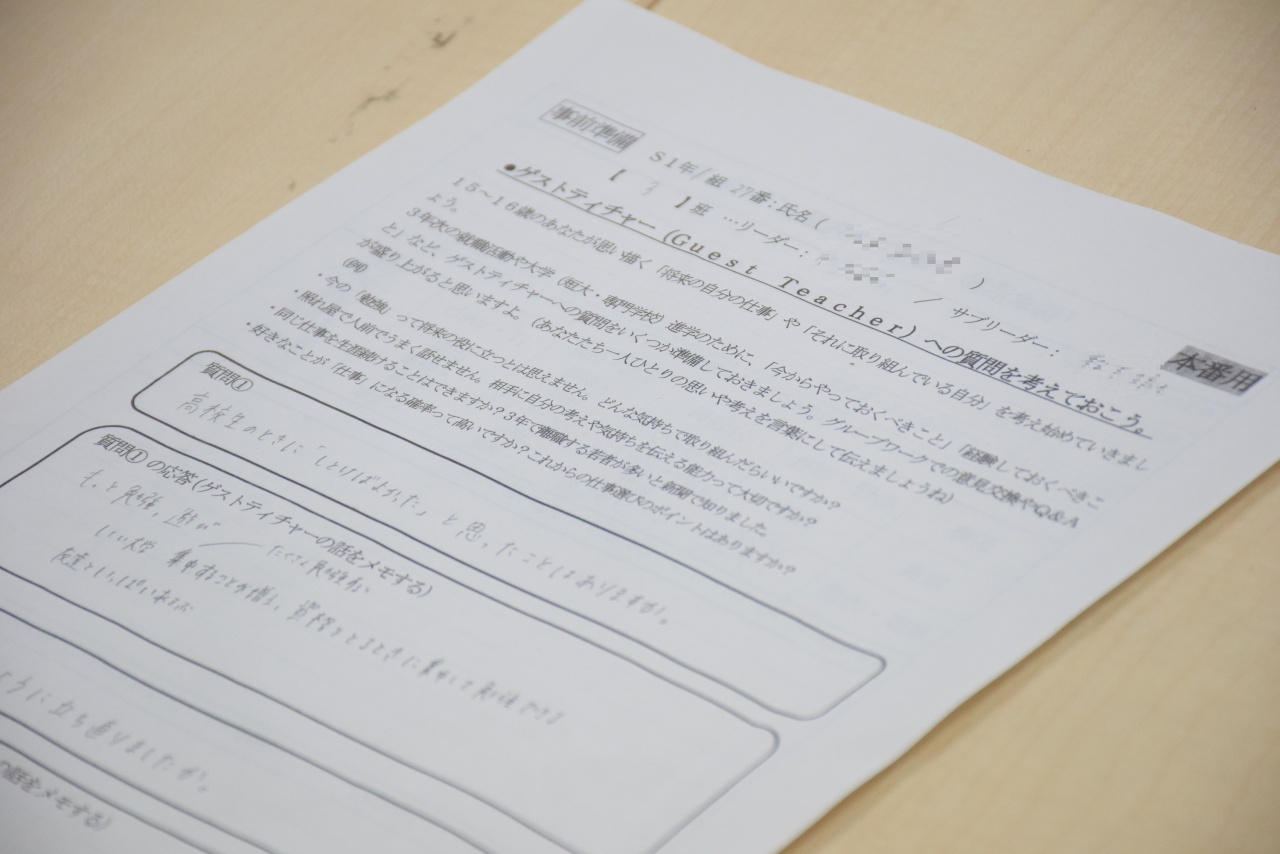 事前準備
本番用
S1年1組27番:氏名( )
【 3 】班 …リーダー: / サブリーダー:
●ゲストティチャー(Guest Teacher)への質問を考えておこう。
15~16歳のあなたが思い描く「将来の自分の仕事」や「それに取り組んでいる自分」を考え始めていきまし
ょう。
3年次の就職活動や大学(短大・専門学校)進学のために、「今からやっておくべきこと」「経験しておくべきこ
と」など、ゲストティチャーへの質問をいくつか準備しておきましょう。グループワークでの意見交換やQ&A
が盛り上がると思いますよ。(あなたたち一人ひとりの思いや考えを言葉にして伝えましょうね)
(例)
・今の「勉強」って将来の役に立つとは思えません。どんな気持ちで取り組んだらいいですか?
・照れ屋で人前でうまく話せません。相手に自分の考えや気持ちを伝える能力って大切ですか?
・同じ仕事を生涯続けることはできますか?3年で離職する若者が多いと新聞で知りました。
・好きなことが「仕事」になる確率って高いですか?これからの仕事選択のポイントはありますか?
質問①
高校生のときに「しとけばよかった」と思ったことはありますか。
質問①の応答(ゲストティチャーの話をメモする)
もっと勉強、遊び
たくさん勉強が
集中することが増え、資格をとるときに集中して勉強できる
ように立ち直りましたか。
の話をメモする)